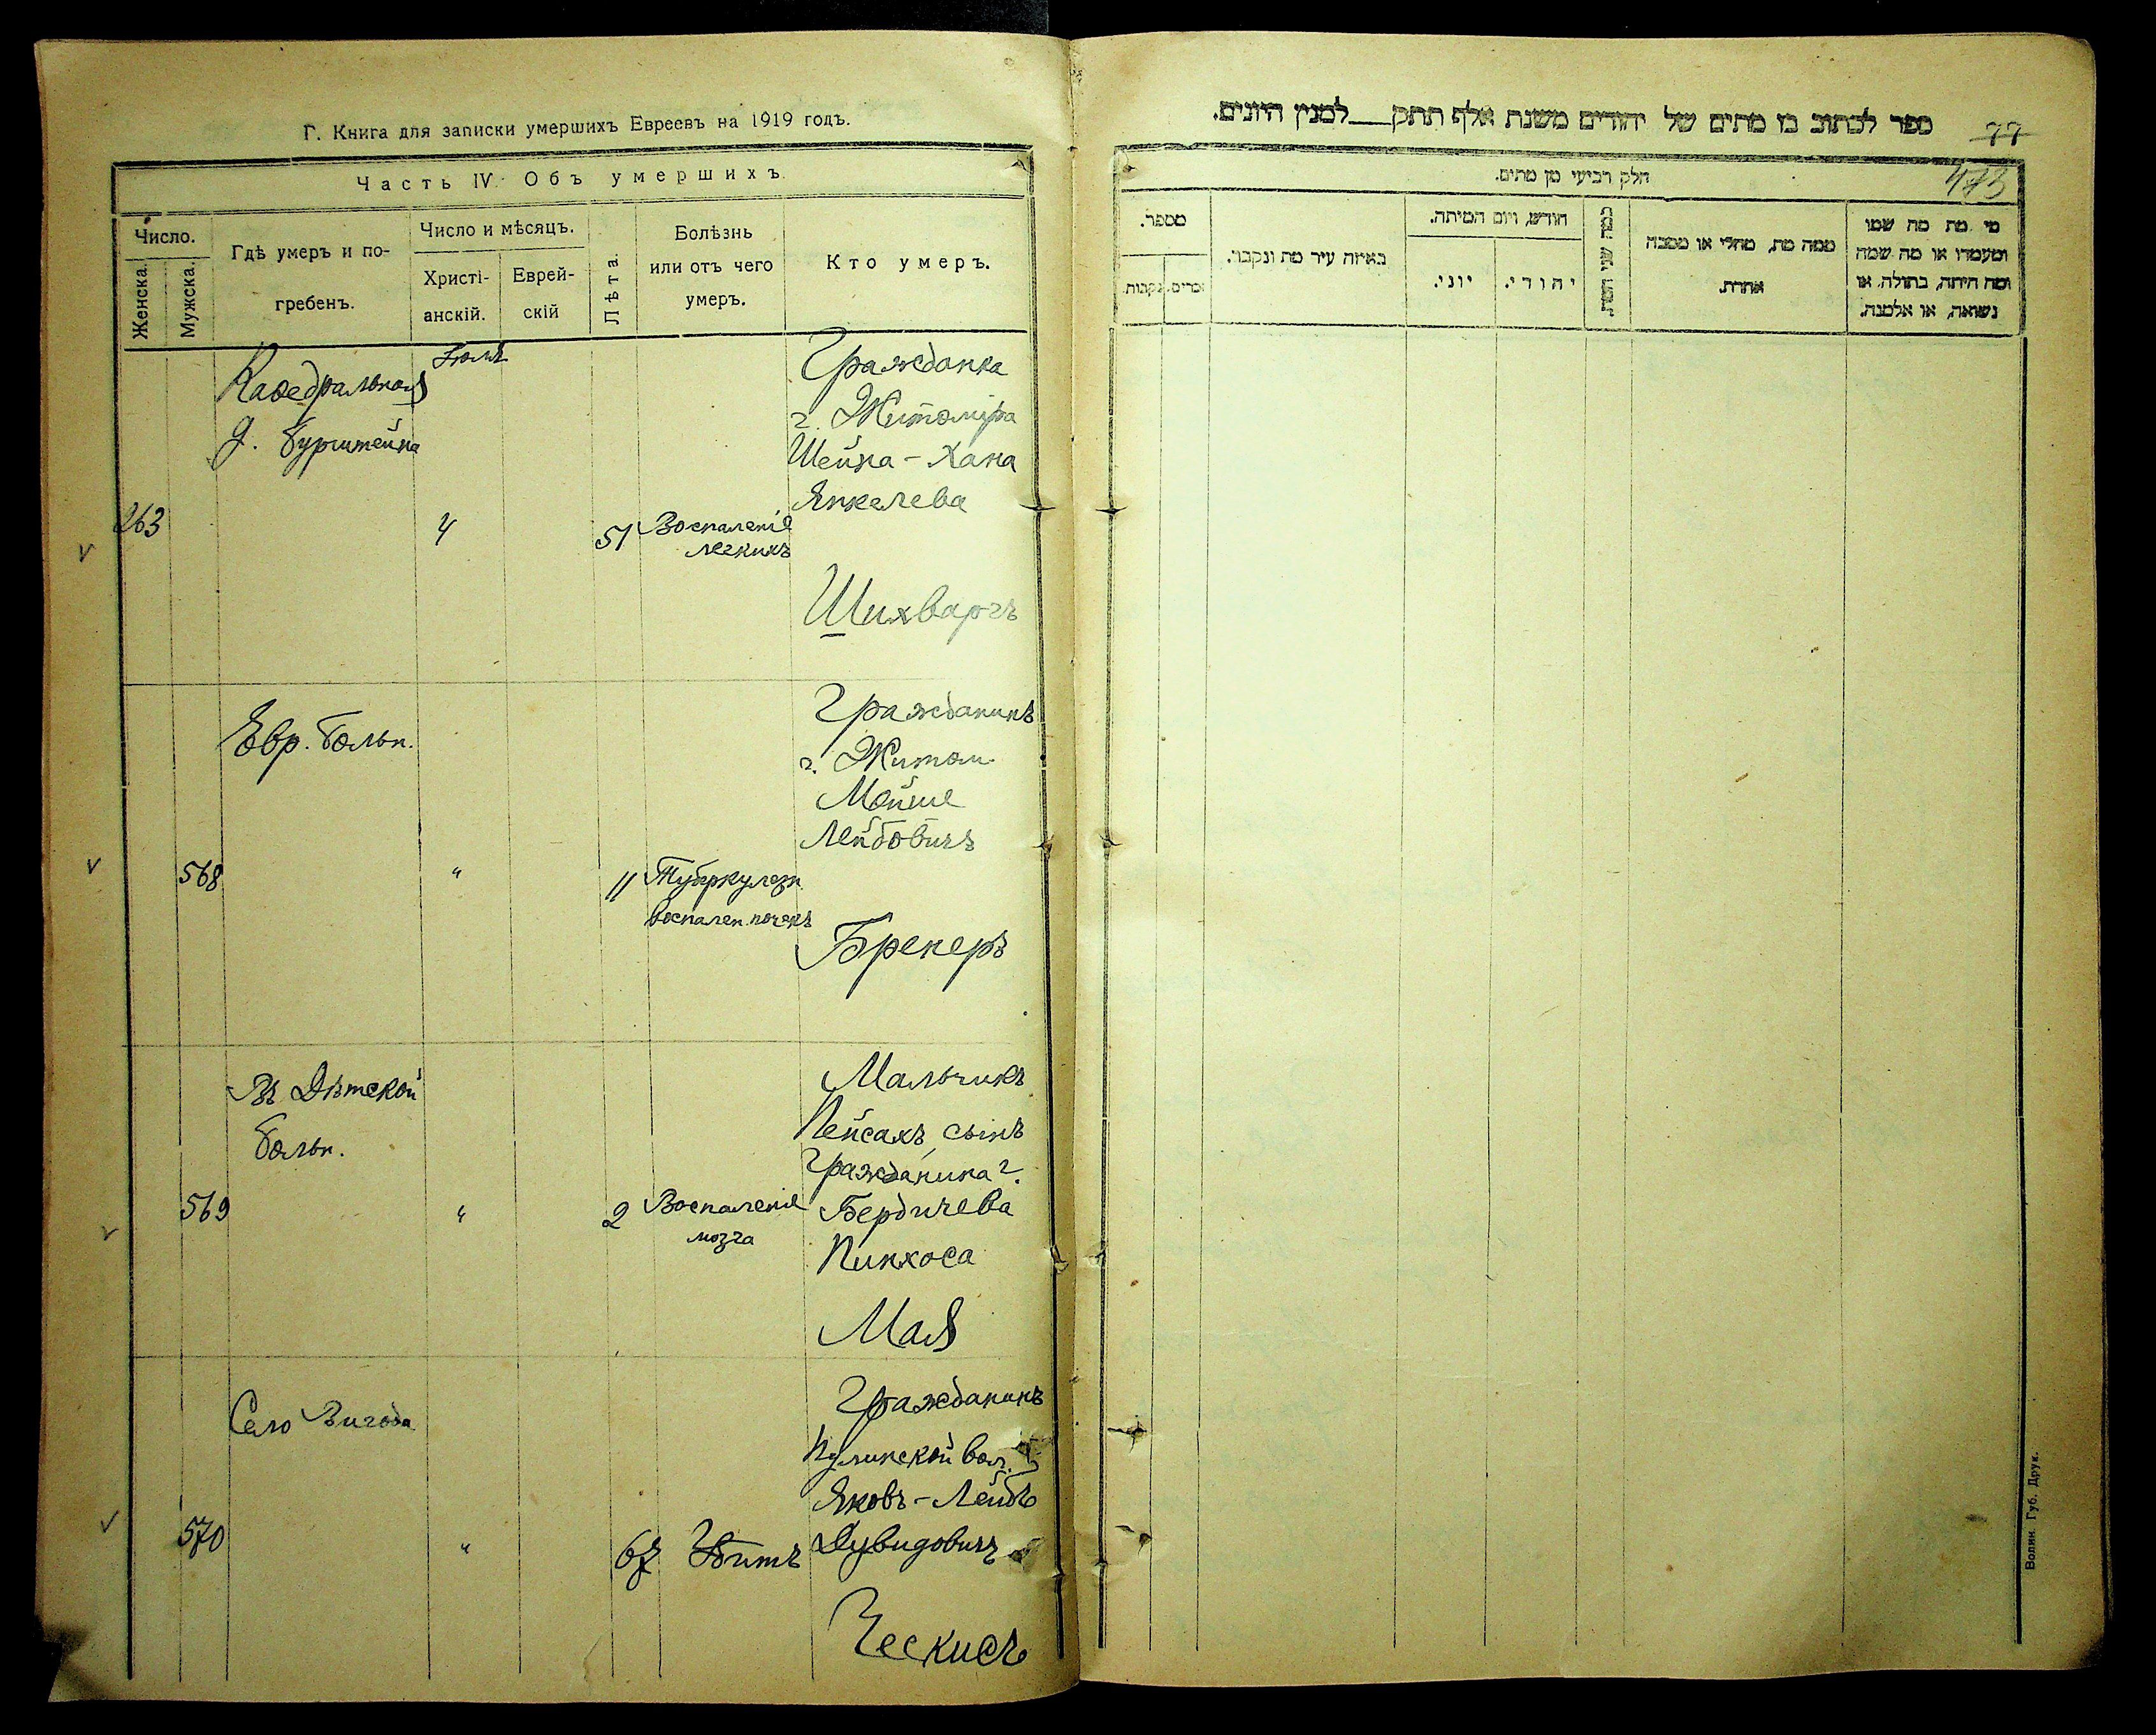 Г. Книга для записки умершихъ Евреевъ на 1919 годъ.
Часть IV. Объ умершихъ.
Число.
Женска.
Мужска.
Гдѣ умеръ и по-
гребенъ.
Число и мѣсяцъ.
Христі-
анскій.
Еврей-
скій
Лѣта.
Болѣзнь
или отъ чего
умеръ.
Кто умеръ.
263
Каѳедральная
д. Бурштейна
4
51
Воспаленіе
легкихъ
Гражданка
г. Житоміра
Шейна-Хана
Янкелева
Шихваргъ
568
Евр. больн.
"
11
Туберкулезн.
воспален. почекъ
Гражданинъ
г. Житом.
Мойше
Лейбовичъ
Брекеръ
569
Въ Дѣтской
больн.
"
2
Воспаленіе
мозга
Мальчикъ
Пейсахъ, сынъ
гражданина г.
Бердичева
Пинхоса
Мая
570
Село Вигода
"
67
Убитъ
Гражданинъ
Пулинской вол.
Яковъ-Лейбъ
Дувидовичъ
Ческисъ
ספר לכתוב בו מתים של יהודים משנת אלף תתק___למנין היונים.
77
473
חלק רביעי מן מתים.
מספר.
זכרים.
נקבות.
באיזה עיר מת ונקבר.
חודש, ויום המיתה.
יוני.
יהודי.
כמה שני המת.
ממה מת, מחלי או מסבה
אחרת.
מי מת מה שמו
ומעמדו או מה שמה
ומה היתה, בתולה, או
נשואה, או אלמנה.
Волин. Губ. Друк.